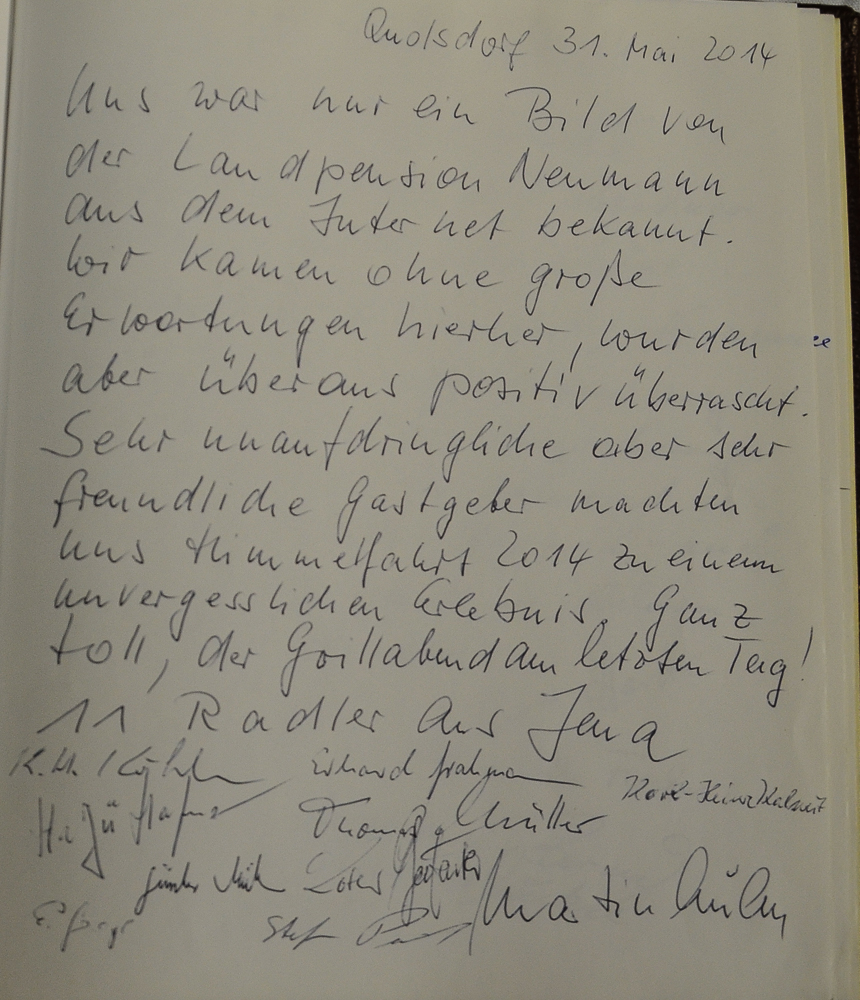 Quolsdorf 31. Mai 2014
Uns war nur ein Bild von
der Landpension Neumann
aus dem Internet bekannt.
Wir kamen ohne große
Erwartungen hierher, wurden
aber überaus positiv überrascht.
Sehr unaufdringliche aber sehr
freundliche Gastgeber machten
uns Himmelfahrt 2014 zu einem
unvergesslichen Erlebnis. Ganz
toll, der Grillabend am letzten Tag!
11 Radler aus Jena
K.H. Erhard
Karl-Heinz
H. Jü Thomas Müller
Günter
Martin